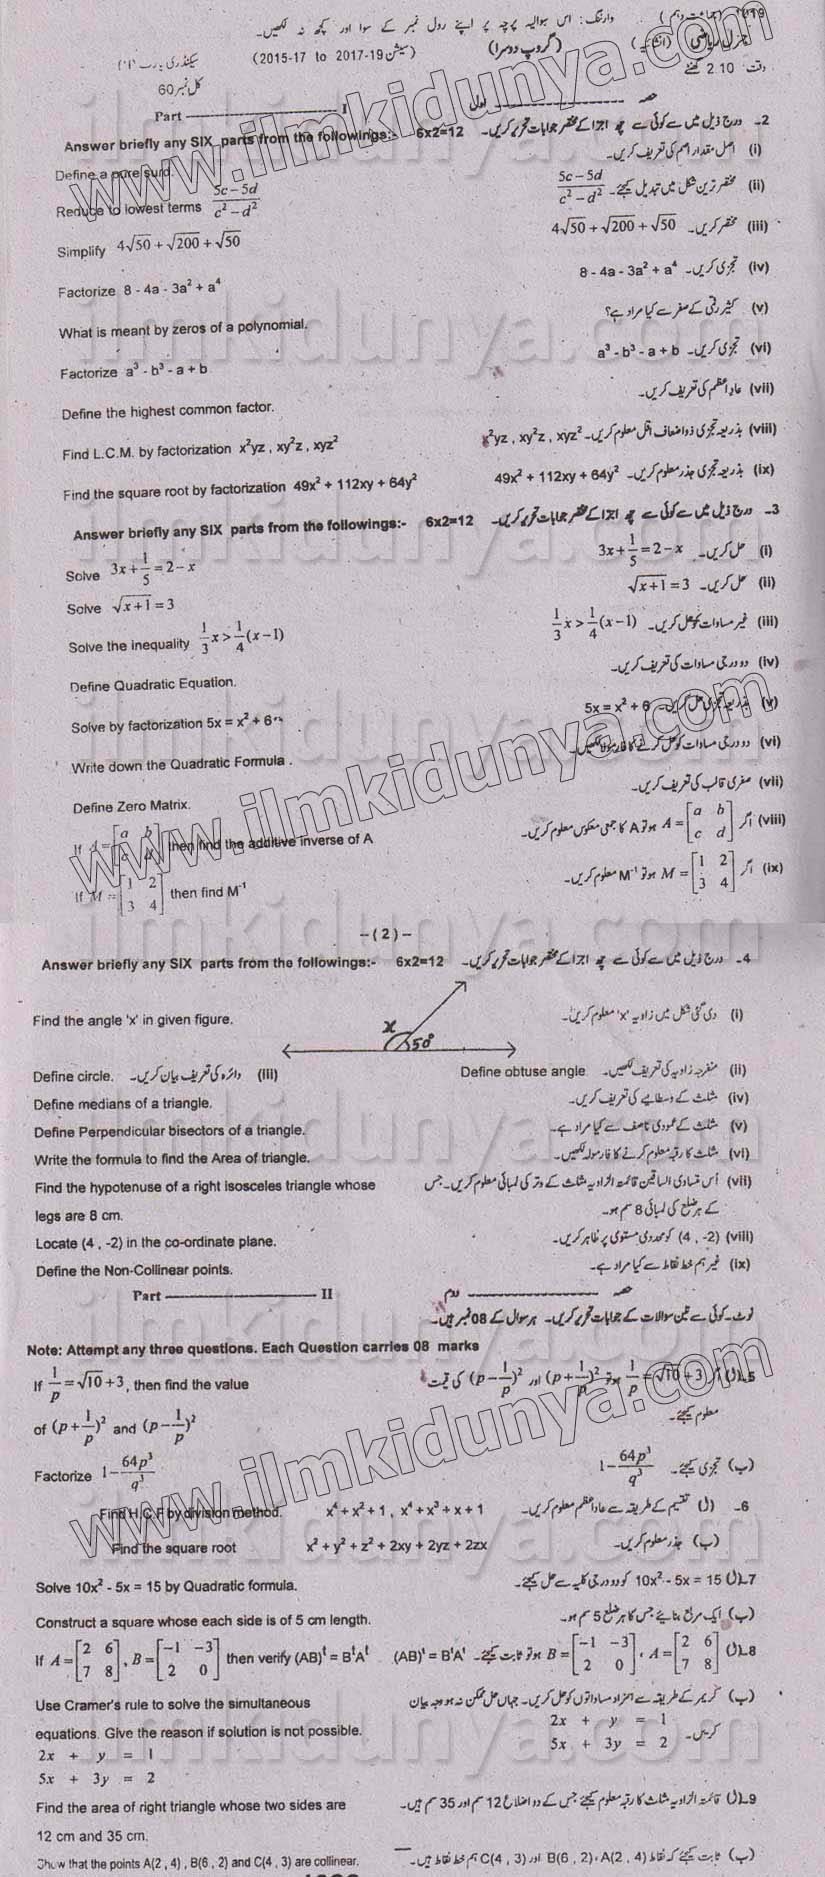 1119 (جماعت دہم) وارننگ: اس سوالیہ پرچہ پر اپنے رول نمبر کے سوا اور کچھ نہ لکھیں۔
جنرل ریاضی (انشائیہ) (گروپ دوسرا) (سیشن 2015-17 to 2017-19)
وقت 2.10 گھنٹے کل نمبر 60
حصہ اول Part I
2۔ درج ذیل میں سے کوئی سے چھ اجزا کے مختصر جوابات تحریر کریں۔ 6x2=12 Answer briefly any SIX parts from the followings:-
(i) اصل مقدار اصم کی تعریف کریں۔
Define a pure surd.
(ii) مختصر ترین شکل میں تبدیل کیجئے۔ (5c – 5d)/(c² – d²) Reduce to lowest terms (5c – 5d)/(c² – d²)
(iii) مختصر کریں۔ 4√50 + √200 + √50 Simplify 4√50 + √200 + √50
(iv) تجزی کریں۔ 8 - 4a - 3a² + a⁴ Factorize 8 - 4a - 3a² + a⁴
(v) کثیر رقمی کے صفر سے کیا مراد ہے؟ What is meant by zeros of a polynomial.
(vi) تجزی کریں۔ a³ - b³ - a + b Factorize a³ - b³ - a + b
(vii) عاد اعظم کی تعریف کریں۔ Define the highest common factor.
(viii) بذریعہ تجزی ذواضعاف اقل معلوم کریں۔ x²yz , xy²z , xyz² Find L.C.M. by factorization x²yz , xy²z , xyz²
(ix) بذریعہ تجزی جذر معلوم کریں۔ 49x² + 112xy + 64y² Find the square root by factorization 49x² + 112xy + 64y²
3۔ درج ذیل میں سے کوئی سے چھ اجزا کے مختصر جوابات تحریر کریں۔ 6x2=12 Answer briefly any SIX parts from the followings:-
(i) حل کریں۔ 3x + 1/5 = 2 – x Solve 3x + 1/5 = 2 – x
(ii) حل کریں۔ √(x+1) = 3 Solve √(x+1) = 3
(iii) غیر مساوات کو حل کریں۔ 1/3 x > 1/4 (x–1) Solve the inequality 1/3 x > 1/4 (x–1)
(iv) دو درجی مساوات کی تعریف کریں۔ Define Quadratic Equation.
(v) بذریعہ تجزی حل کریں۔ 5x = x² + 6 Solve by factorization 5x = x² + 6
(vi) دو درجی مساوات کو حل کرنے کا فارمولا لکھیں۔ Write down the Quadratic Formula .
(vii) صفری قالب کی تعریف کریں۔ Define Zero Matrix.
(viii) اگر A = [a b; c d] ہو تو A کا جمعی معکوس معلوم کریں۔ If A = [a b; c d] then find the additive inverse of A
(ix) اگر M = [1 2; 3 4] ہو تو M⁻¹ معلوم کریں۔ If M = [1 2; 3 4] then find M⁻¹
–(2)–
4۔ درج ذیل میں سے کوئی سے چھ اجزا کے مختصر جوابات تحریر کریں۔ 6x2=12 Answer briefly any SIX parts from the followings:-
(i) دی گئی شکل میں زاویہ 'x' معلوم کریں۔ Find the angle 'x' in given figure.
x 50°
(ii) منفرجہ زاویہ کی تعریف لکھیں۔ Define obtuse angle (iii) دائرہ کی تعریف بیان کریں۔ Define circle.
(iv) مثلث کے وسطانیے کی تعریف کریں۔ Define medians of a triangle.
(v) مثلث کے عمودی ناصف سے کیا مراد ہے۔ Define Perpendicular bisectors of a triangle.
(vi) مثلث کا رقبہ معلوم کرنے کا فارمولہ لکھیں۔ Write the formula to find the Area of triangle.
(vii) اس متساوی الساقین قائمۃ الزاویہ مثلث کے وتر کی لمبائی معلوم کریں۔ جس Find the hypotenuse of a right isosceles triangle whose
کے ہر ضلع کی لمبائی 8 سم ہو۔ legs are 8 cm.
(viii) (4 , -2) کو محددی مستوی پر ظاہر کریں۔ Locate (4 , -2) in the co-ordinate plane.
(ix) غیر ہم خط نقاط سے کیا مراد ہے۔ Define the Non-Collinear points.
حصہ دوم Part II
نوٹ۔ کوئی سے تین سوالات کے جوابات تحریر کریں۔ ہر سوال کے 08 نمبر ہیں۔
Note: Attempt any three questions. Each Question carries 08 marks
5۔(ا) اگر 1/p = √10 + 3 ہو تو (p + 1/p)² اور (p – 1/p)² کی قیمت If 1/p = √10 + 3, then find the value
معلوم کیجئے۔ of (p + 1/p)² and (p – 1/p)²
(ب) تجزی کیجئے۔ 1 – 64p³/q³ Factorize 1 – 64p³/q³
6۔ (ا) تقسیم کے طریقہ سے عاد اعظم معلوم کریں۔ x⁴ + x² + 1 , x⁴ + x³ + x + 1 Find H.C.F by division method.
(ب) جذر معلوم کریں۔ x² + y² + z² + 2xy + 2yz + 2zx Find the square root
7۔(ا) 10x² - 5x = 15 کو دو درجی کلیہ سے حل کیجئے۔ Solve 10x² - 5x = 15 by Quadratic formula.
(ب) ایک مربع بنایئے جس کا ہر ضلع 5 سم ہو۔ Construct a square whose each side is of 5 cm length.
8۔(ا) A = [2 6; 7 8] ، B = [–1 –3; 2 0] ہو تو ثابت کیجئے۔ (AB)ᵗ = BᵗAᵗ If A = [2 6; 7 8] , B = [–1 –3; 2 0] then verify (AB)ᵗ = BᵗAᵗ
(ب) کریمر کے طریقہ سے ہمزاد مساواتوں کو حل کریں۔ جہاں حل ممکن نہ ہو وجہ بیان Use Cramer's rule to solve the simultaneous
کریں۔ 2x + y = 1 equations. Give the reason if solution is not possible.
5x + 3y = 2
2x + y = 1
5x + 3y = 2
9۔(ا) قائمۃ الزاویہ مثلث کا رقبہ معلوم کیجئے جس کے دو اضلاع 12 سم اور 35 سم ہیں۔ Find the area of right triangle whose two sides are
12 cm and 35 cm.
(ب) ثابت کیجئے کہ نقاط A(2 , 4) ، B(6 , 2) اور C(4 , 3) ہم خط نقاط ہیں۔ Show that the points A(2 , 4) , B(6 , 2) and C(4 , 3) are collinear.
www.ilmkidunya.com